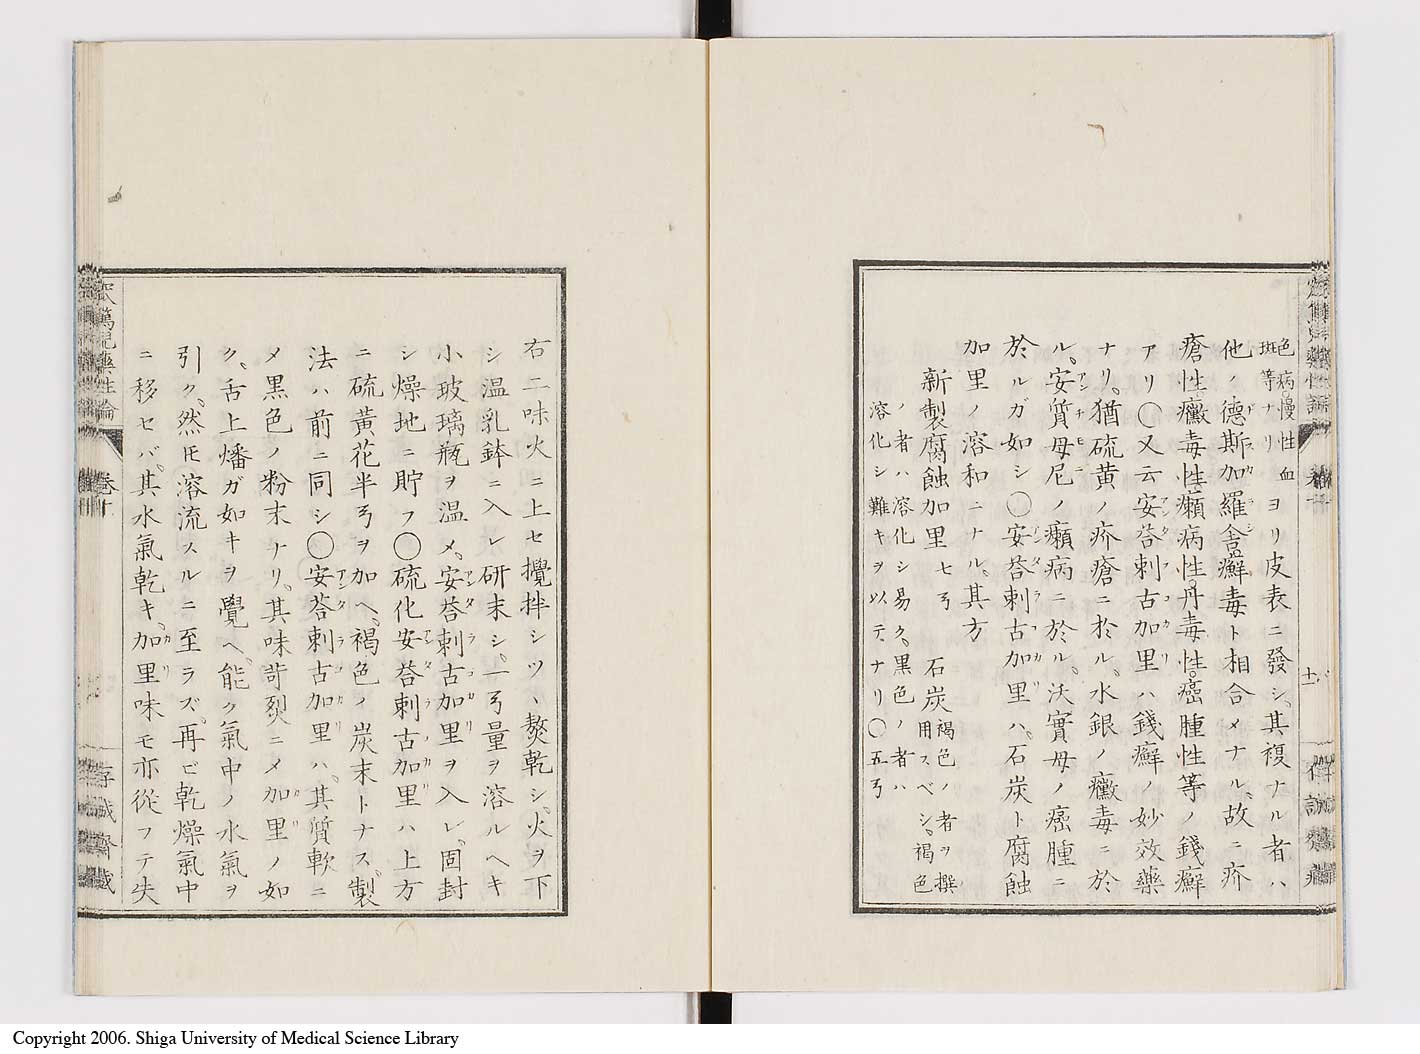 色病。慢性血
斑等ナリ
ヨリ皮表ニ發シ。其複ナル者ハ
他ノ德斯加羅舍癬毒ト相合メナル。故ニ疥
瘡性黴毒性。癩病性。丹毒性。癌腫性等ノ錢癬
アリ〇又云安荅剌古加里ハ錢癬ノ妙效藥
ナリ。猶硫黄ノ疥瘡ニ於ル。水銀ノ黴毒ニ於
ル。安質母尼ノ癩病ニ於ル。沃實母ノ癌腫ニ
於ルガ如シ〇安荅剌古加里ハ。石炭ト腐蝕
加里ノ溶和ニナル。其方
新製腐蝕加里七弓 石炭
褐色ノ者ヲ撰
用スベシ。褐色
ノ者ハ溶化シ易ク。黑色ノ者ハ
溶化シ難キヲ以テナリ〇五弓
右二味火ニ上セ攪拌シツヽ熬乾シ。火ヲ下
シ温乳鉢ニ入レ研末シ。一弓量ヲ溶ルヘキ
小玻璃瓶ヲ温メ。安荅剌古加里ヲ入レ。固封
シ燥地ニ貯フ〇硫化安荅剌古加里ハ上方
ニ硫黄花半弓ヲ加ヘ。褐色ノ炭末トナス。製
法ハ前ニ同シ〇安荅剌古加里ハ。其質軟ニ
メ黑色ノ粉末ナリ。其味苛烈ニメ加里ノ如
ク。舌上燔ガ如キヲ覺ヘ。能ク氣中ノ水氣ヲ
引ク。然𪜈溶流スルニ至ラズ。再ビ乾燥氣中
ニ移セバ。其水氣乾キ。加里味モ亦從フテ失
窊萬兒藥性論
卷十
存誠齋藏
Copyright 2006. Shiga University of Medical Science Library